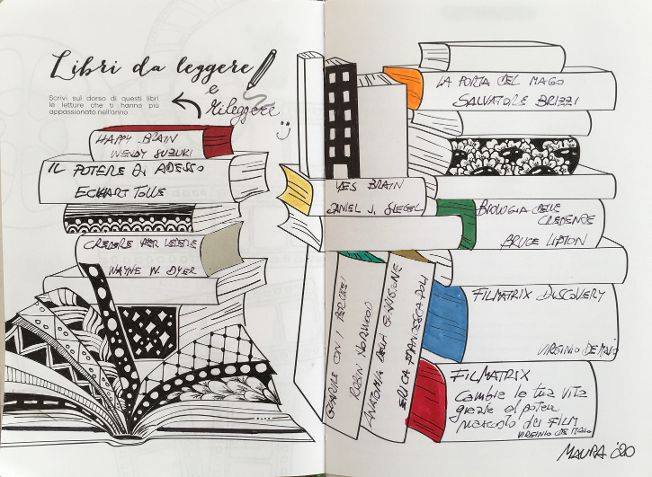 Libri da leggere
e
Rileggere
Scrivi sul dorso di questi libri
le letture che ti hanno più
appassionato nell'anno
HAPPY BRAIN
WENDY SUZUKI
IL POTERE DI ADESSO
ECKHART TOLLE
CREDERE PER VEDERE
WAYNE W. DYER
LA PORTA DEL MAGO
SALVATORE BRIZZI
YES BRAIN
DANIEL J. SIEGEL
BIOLOGIA DELLE
CREDENZE
BRUCE LIPTON
GUARIRE CON I PERCHÉ
ROBIN NORWOOD
ANATOMIA DELLA GUARIGIONE
ERICA FRANCESCA POLI
FILMATRIX DISCOVERY
VIRGINIO DE MAIO
FILMATRIX
Cambia la tua vita
grazie al potere
nascosto dei FILM
VIRGINIO DE MAIO
MAURA '020